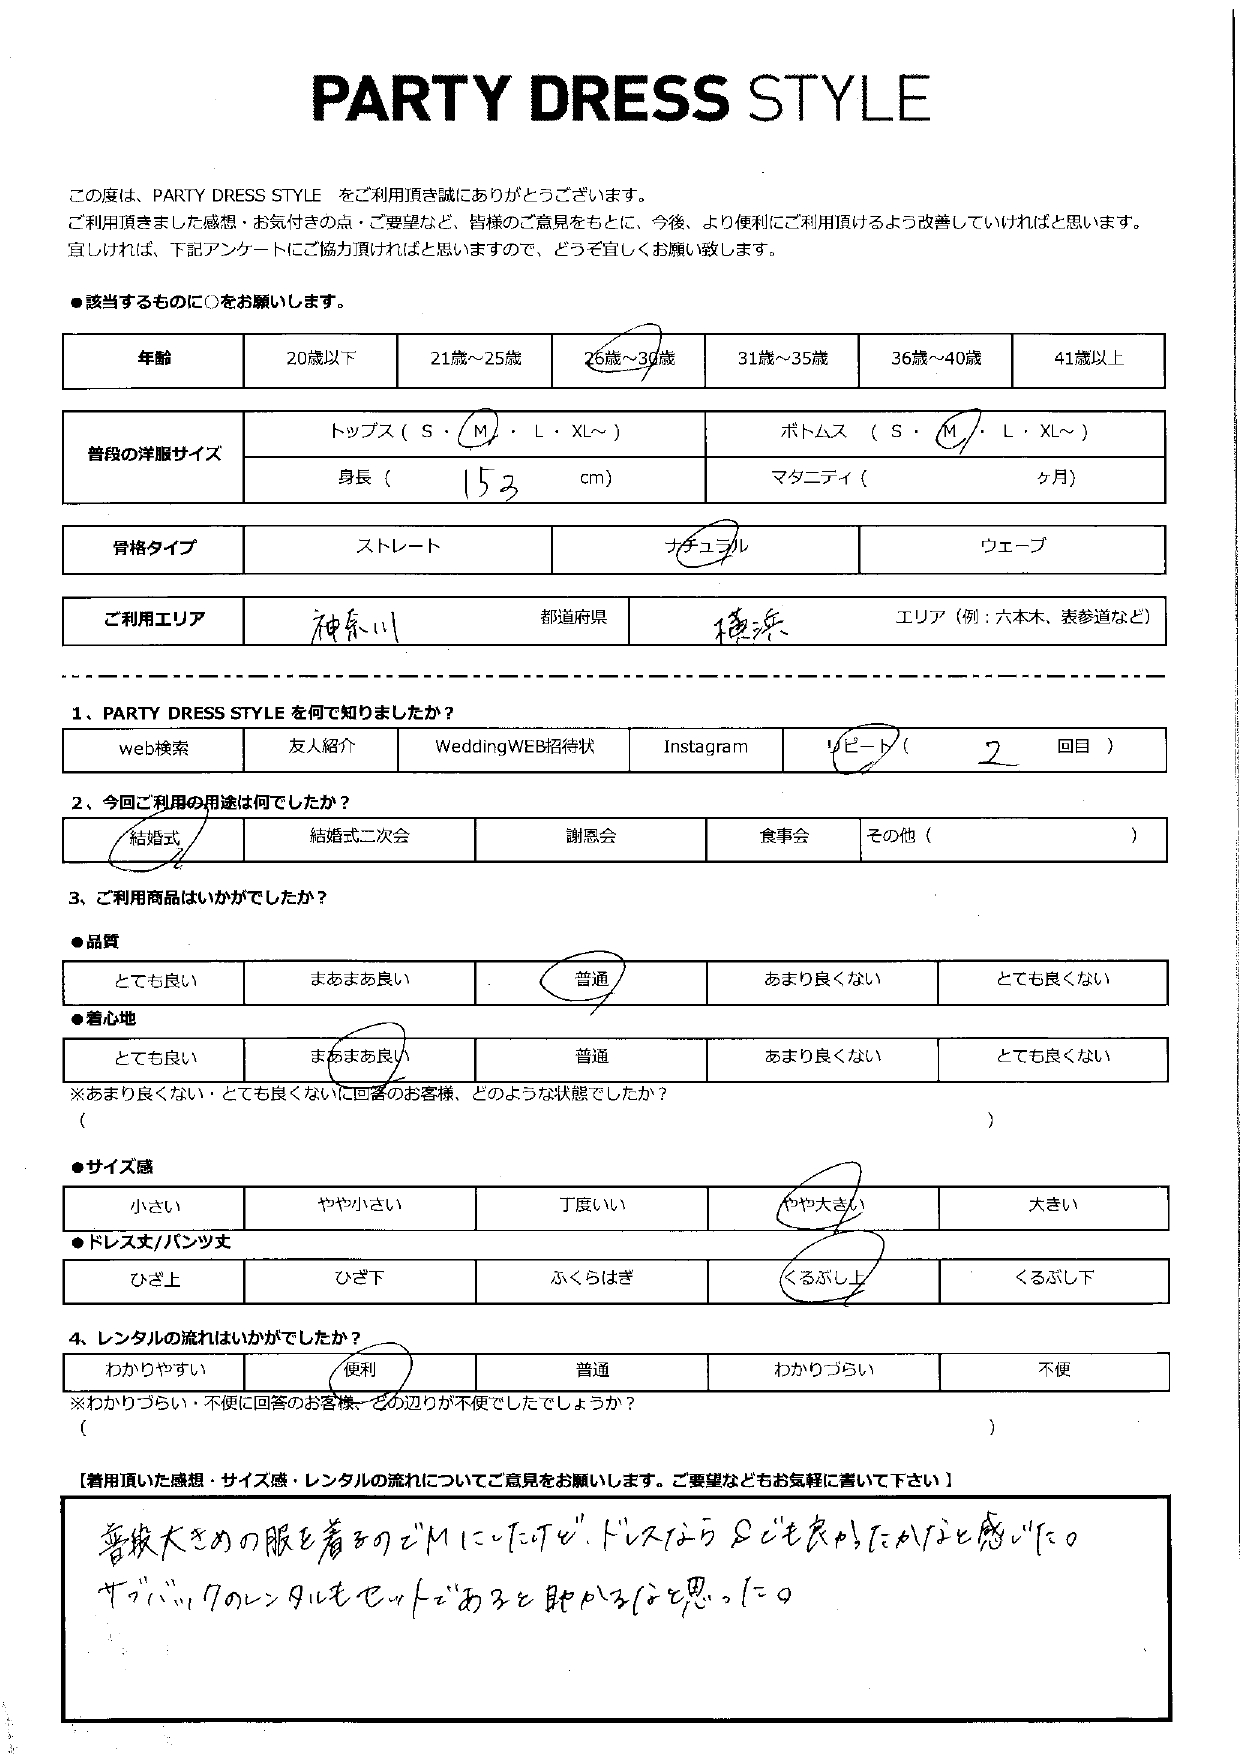 PARTY DRESS STYLE
この度は、PARTY DRESS STYLE をご利用頂き誠にありがとうございます。
ご利用頂きました感想・お気付きの点・ご要望など、皆様のご意見をもとに、今後、より便利にご利用頂けるよう改善していければと思います。
宜しければ、下記アンケートにご協力頂ければと思いますので、どうぞ宜しくお願い致します。
●該当するものに○をお願いします。
年齢 20歳以下 21歳～25歳 26歳～30歳 31歳～35歳 36歳～40歳 41歳以上
普段の洋服サイズ トップス ( S ・ M ・ L ・ XL～ ) ボトムス ( S ・ M ・ L ・ XL～ )
身長 ( 153 cm) マタニティ ( ヶ月)
骨格タイプ ストレート ナチュラル ウェーブ
ご利用エリア 神奈川 都道府県 横浜 エリア（例：六本木、表参道など）
1、PARTY DRESS STYLE を何で知りましたか？
web検索 友人紹介 WeddingWEB招待状 Instagram リピート ( 2 回目 )
2、今回ご利用の用途は何でしたか？
結婚式 結婚式二次会 謝恩会 食事会 その他 ( )
3、ご利用商品はいかがでしたか？
●品質
とても良い まあまあ良い 普通 あまり良くない とても良くない
●着心地
とても良い まあまあ良い 普通 あまり良くない とても良くない
※あまり良くない・とても良くないに回答のお客様、どのような状態でしたか？
( )
●サイズ感
小さい やや小さい 丁度いい やや大きい 大きい
●ドレス丈/パンツ丈
ひざ上 ひざ下 ふくらはぎ くるぶし上 くるぶし下
4、レンタルの流れはいかがでしたか？
わかりやすい 便利 普通 わかりづらい 不便
※わかりづらい・不便に回答のお客様、どの辺りが不便でしたでしょうか？
( )
【着用頂いた感想・サイズ感・レンタルの流れについてご意見をお願いします。ご要望などもお気軽に書いて下さい】
普段大きめの服を着るのでMにしたけど、ドレスならSでも良かったかなと感じた。
サブバックのレンタルもセットであると助かるなと思った。